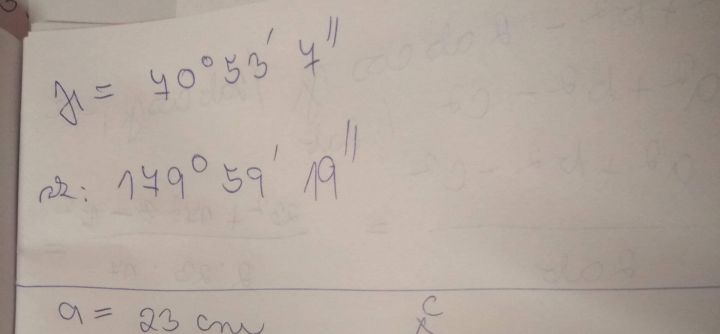 γ1 = 70° 53' 7"
zk: 179° 59' 19"
a = 23 cm
C